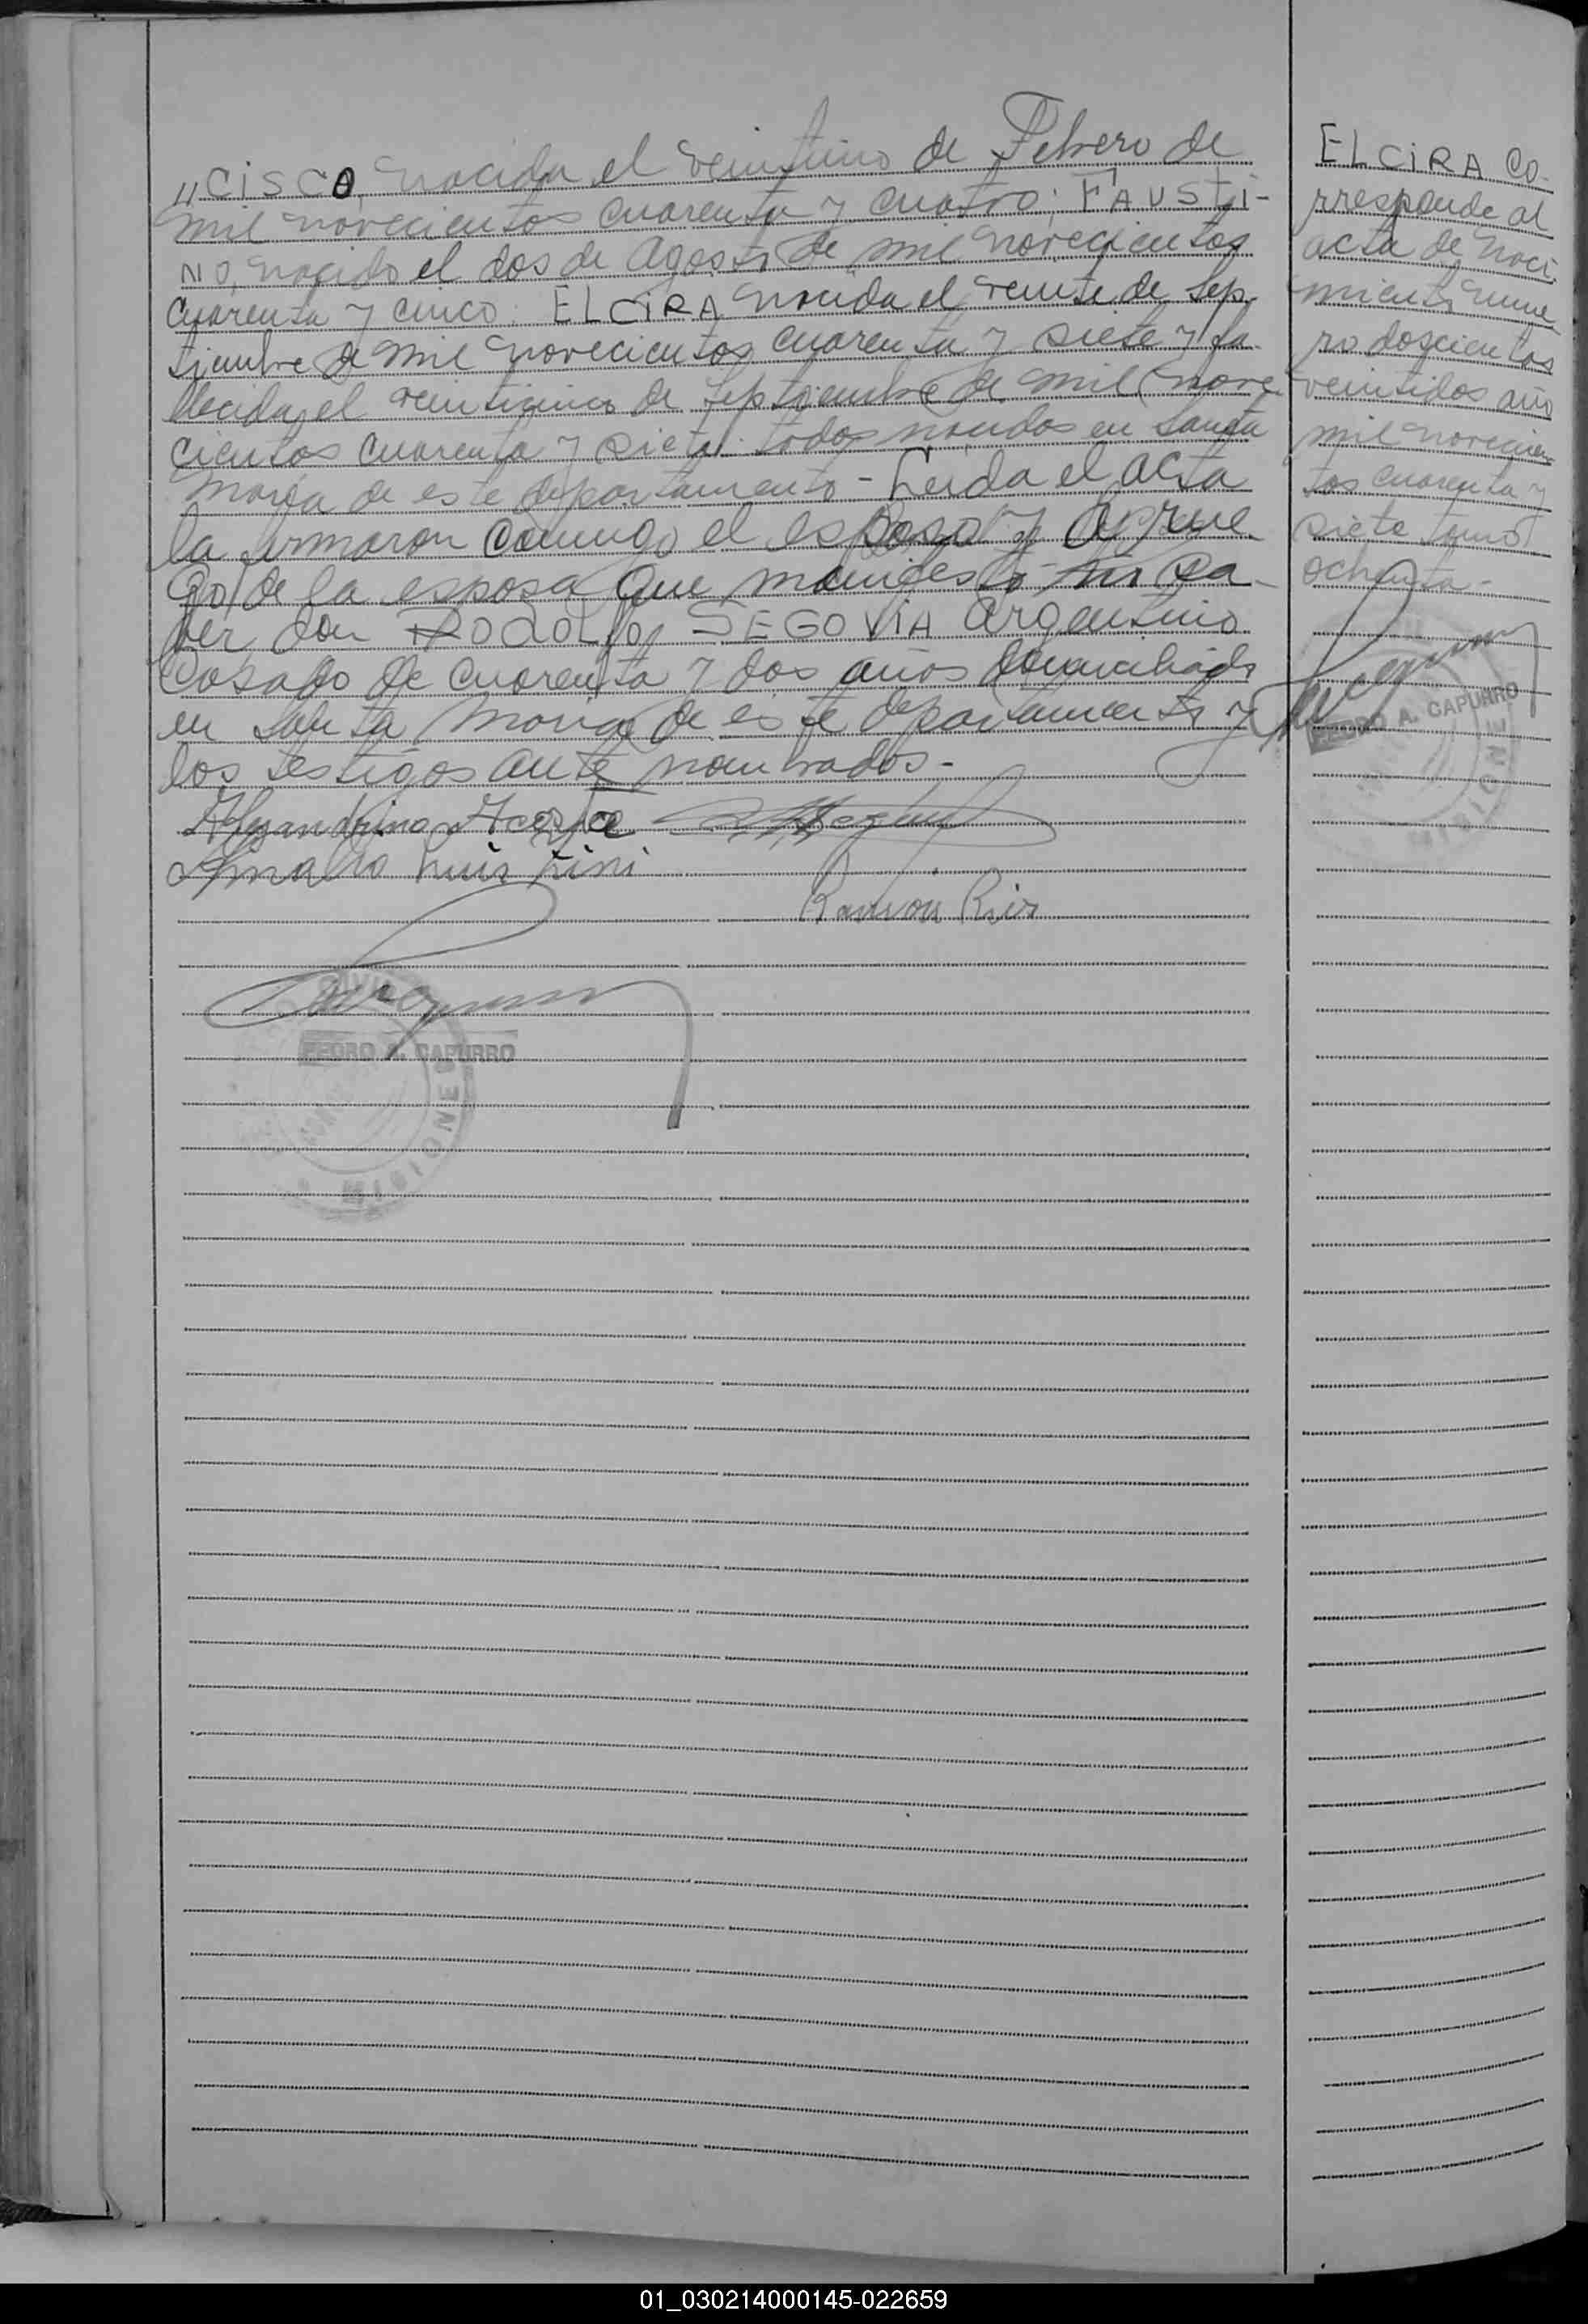 "CISCO, nacido el veintiuno de Febrero de
mil novecientos cuarenta y cuatro; FAUSTI-
NO, nacido el dos de Agosto de mil novecientos
cuarenta y cinco. ELCIRA nacida el veinte de Sep-
tiembre de mil novecientos cuarenta y siete y fa-
llecida el veinticinco de Septiembre de mil nove
cientos cuarenta y siete: todos nacidos en Santa
María de este departamento - Leida el acta
la firmaron conmigo el esposo y a rue
go de la esposa que manifestó no sa-
ber don RODOLFO SEGOVIA argentino
casado de cuarenta y dos años domiciliado
en Santa Maria de este departamento y
los testigos ante nombrados.-
Alejandrino Acosta
Amalio Luis Pini
Ramon Rios
PEDRO A. CAPURRO
MISIONES
ELCIRA Co-
rresponde al
acta de naci
miento nume
ro doscientos
veintidos año
mil novecien
tos cuarenta y
siete tomo
ochenta-
PEDRO A. CAPURRO
MISIONES
01_030214000145-022659